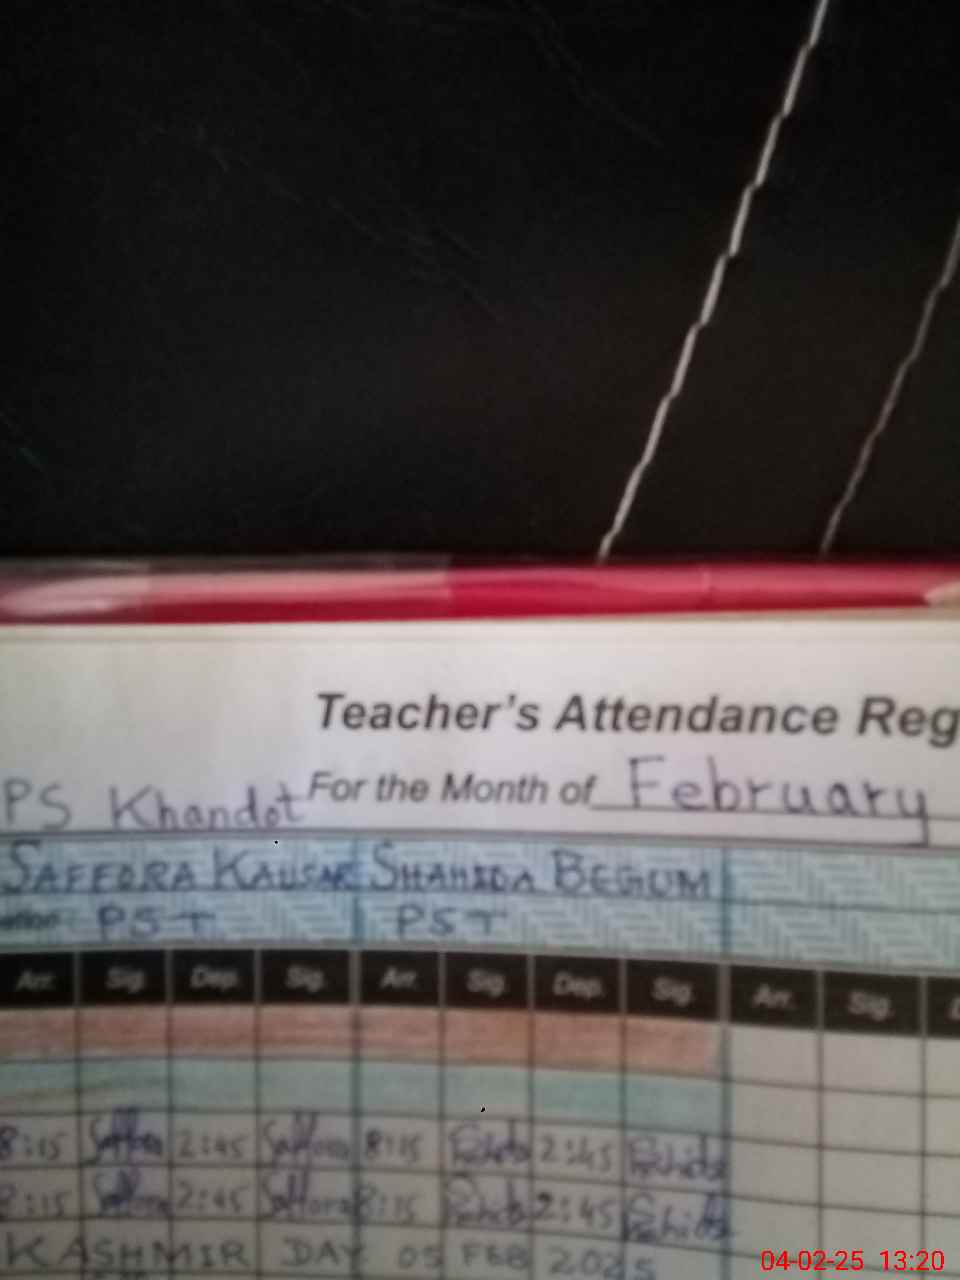 Teacher's Attendance Reg
For the Month of February
PS Khandot
SAFFORA KAUSAR SHAHIDA BEGUM
PST PST
Arr. Sig. Dep. Sig. Arr. Sig. Dep. Sig. Arr. Sig. D
8:15 Saffora 2:45 Saffora 8:15 2:45
8:15 Saffora 2:45 Saffora 8:15 2:45
KASHMIR DAY 05 FEB 2025
04-02-25 13:20